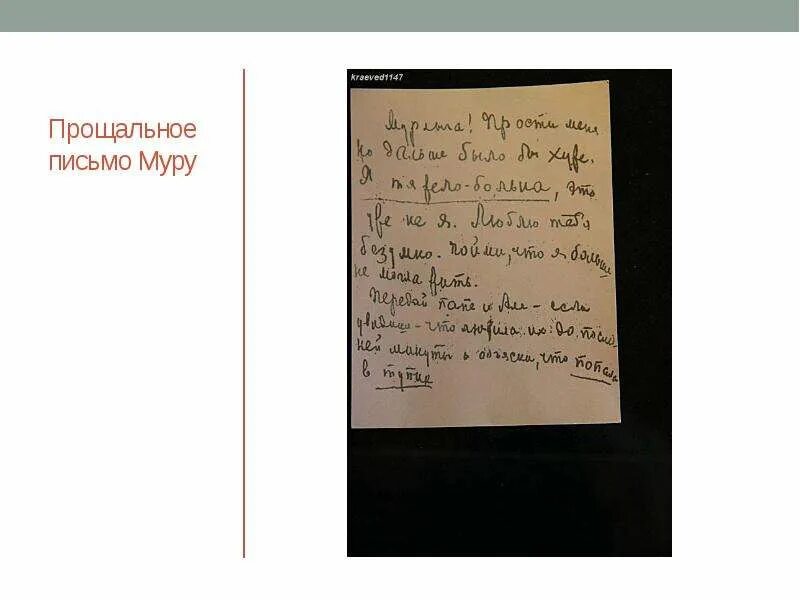 Прощальное
письмо Муру
kraeved1147
Мурлыга! Прости меня
но дальше было бы хуже.
Я тяжело-больна, это
уже не я. Люблю тебя
безумно. Пойми, что я больше
не могла жить.
Передай папе и Але - если
увидишь - что любила их до послед
ней минуты и объясни, что попала
в тупик